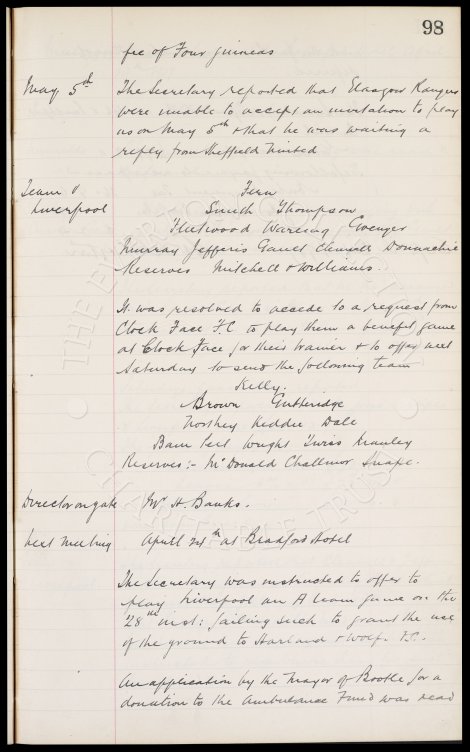 98
fee of Four guineas
May 5th
The Secretary reported that Glasgow Rangers
were unable to accept an invitation to play
us on May 5th & that he was waiting a
reply from Sheffield United
Team v
Liverpool
Fern
Smith Thompson
Fleetwood Wareing Grenyer
Murray Jefferis Gault Clennell Donnachie
Reserves Mitchell & Williams.
It was resolved to accede to a request from
Clock Face F.C. to play them a benefit game
at Clock Face for their trainer & to offer next
Saturday to send the following team
Kelly.
Brown Gutteridge
Northey Keddie Dale
Bain Wright Lumley
Reserves:- McDonald Challinor Snape.
Director on gate
Mr H. Banks.
Next Meeting
April 24th at Bradford Hotel
The Secretary was instructed to offer to
play Liverpool an A team game on the
28th inst: failing such to grant the use
of the ground to Harland & Wolf. F.C.
An application by the Mayor of Bootle for a
donation to the Ambulance Fund was read
THE EVERTON
CHARITABLE TRUST